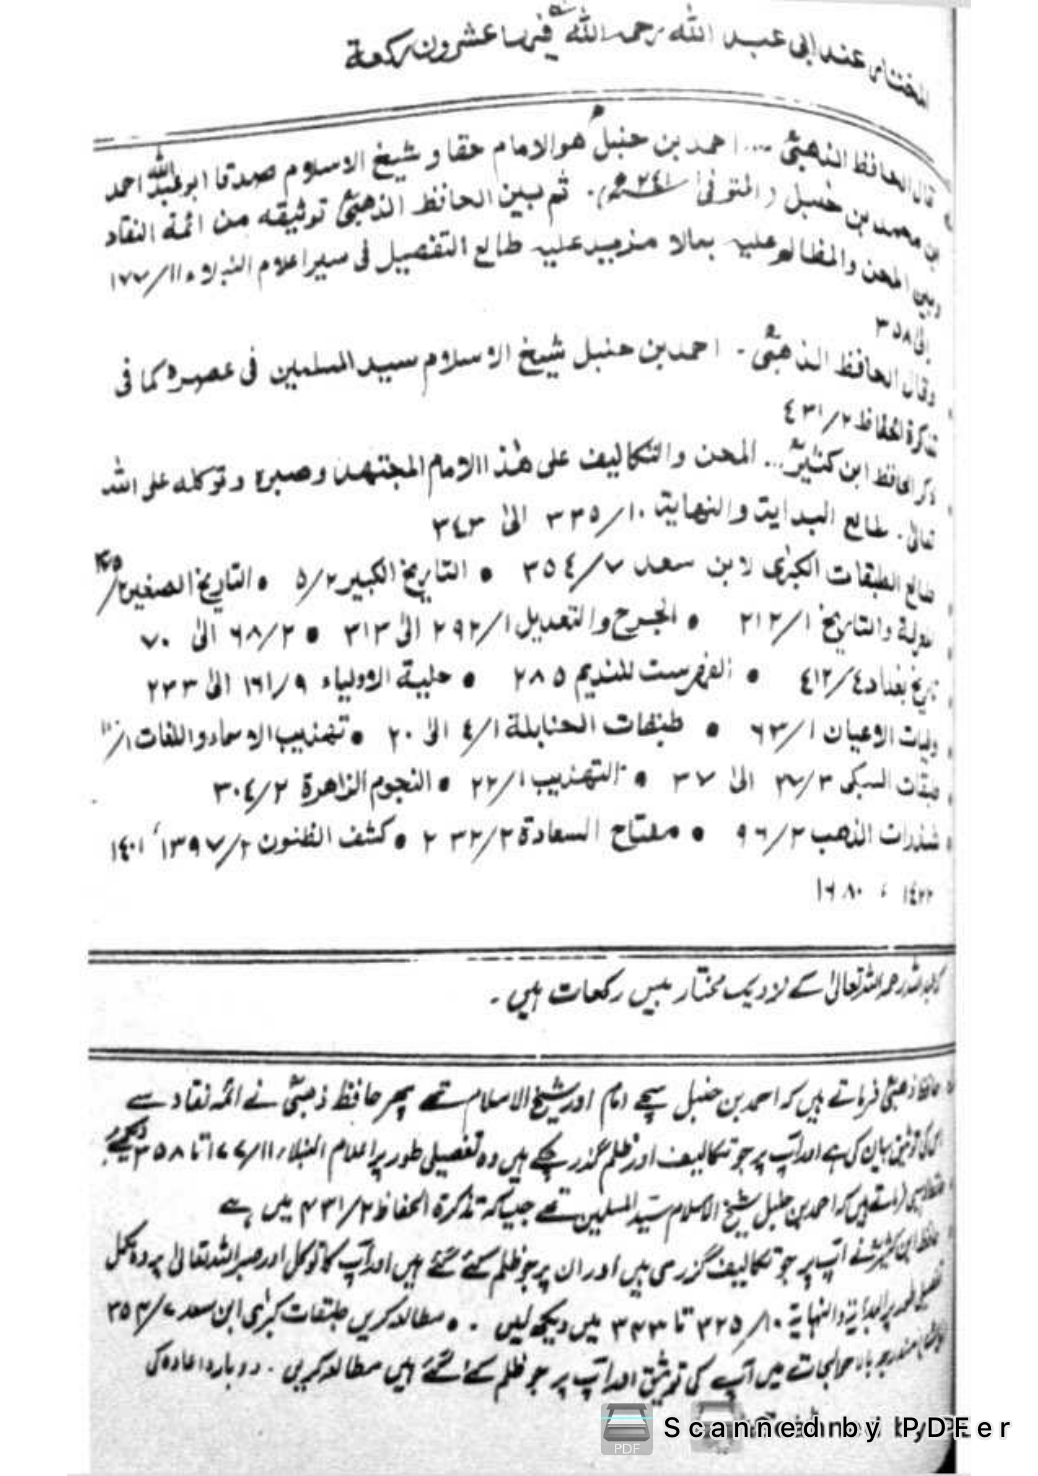 المختار عند ابی عبد الله رحمہ اللہ فیہا عشرون رکعة
قال الحافظ الذهبیؒ ... احمد بن حنبلؒ هو الامام حقا و شیخ الاسلام صدقا ابو عبد الله احمد
بن محمد بن حنبل والمتوفیٰ ۲٤۱ھ. ثم بین الحافظ الذهبیؒ توثیقه من ائمة النقاد
وبین المحن والمظالم علیه بمالا مزید علیه طالع التفصیل فی سیر اعلام النبلاء ۱۱/۱۷۷
الی ۳۵۸
وقال الحافظ الذهبیؒ - احمد بن حنبل شیخ الاسلام سید المسلمین فی عصره کما فی
تذکرة الحفاظ ۲/٤۳۱
ذکر الحافظ ابن کثیرؒ... المحن والتکالیف علی هٰذا الامام المجتهد وصبره وتوکله علی الله
تعالیٰ. طالع البدایة والنهایة ۱۰/۳۳۵ الیٰ ۳٤۳
طالع الطبقات الکبریٰ لابن سعد ۷/۳۵٤ • التاریخ الکبیر ۲/۵ • التاریخ الصغیر ۲/
والتاریخ ۱/۲۱۲ • الجرح والتعدیل ۱/۲۹۲ الیٰ ۳۱۳ • ۲/۶۸ الیٰ ۷۰
تاریخ بغداد ٤/٤۱۲ • الفهرست للندیم ۲۸۵ • حلیة الاولیاء ۹/۱۶۱ الیٰ ۲۳۳
وفیات الاعیان ۱/۶۳ • طبقات الحنابلة ۱/٤ الیٰ ۲۰ • تهذیب الاسماء واللغات ۱/
طبقات السبکی ۲۷/۳ الیٰ ۳۷ • التهذیب ۱/۲۲ • النجوم الزاهرة ۲/۳۰٤
شذرات الذهب ۲/۹۶ • مفتاح السعادة ۲/۲۳۲ • کشف الظنون ۲/۱۳۹۷، ۱٤۰۱
۱٤۲۲ ، ۱۶۸۰
رحمہ اللہ تعالیٰ کے نزدیک مختار بیس رکعات ہیں۔
حافظ ذھبیؒ فرماتے ہیں کہ احمد بن حنبل سچے امام اور شیخ الاسلام تھے پھر حافظ ذھبیؒ نے ائمہ نقاد سے
اس کی توثیق بیان کی ہے اور آپ پر جو تکالیف اور ظلم گذر چکے ہیں وہ تفصیلی طور پر اعلام النبلاء ۱۱/۱۷۷ تا ۳۵۸ دیکھیے
کہ احمد بن حنبل شیخ الاسلام سید المسلمین تھے جیسا کہ تذکرة الحفاظ ۲/۴۳۱ میں ہے
حافظ ابن کثیرؒ نے آپ پر جو تکالیف گزری ہیں اور ان پر جو ظلم کئے گئے ہیں اور آپ کا توکل اور صبر اللہ تعالیٰ پر وہ مکمل
تفصیلی طور پر البدایة والنهایة ۱۰/۳۲۵ تا ۳۴۳ میں دیکھ لیں۔ • مطالعہ کریں طبقات کبریٰ ابن سعد ۷/۳۵۴
مندرجہ بالا حوالجات میں آپ کی توثیق اور آپ پر جو ظلم کئے گئے ہیں مطالعہ کریں۔ دوبارہ اعادہ کی
Scanned by PDFer